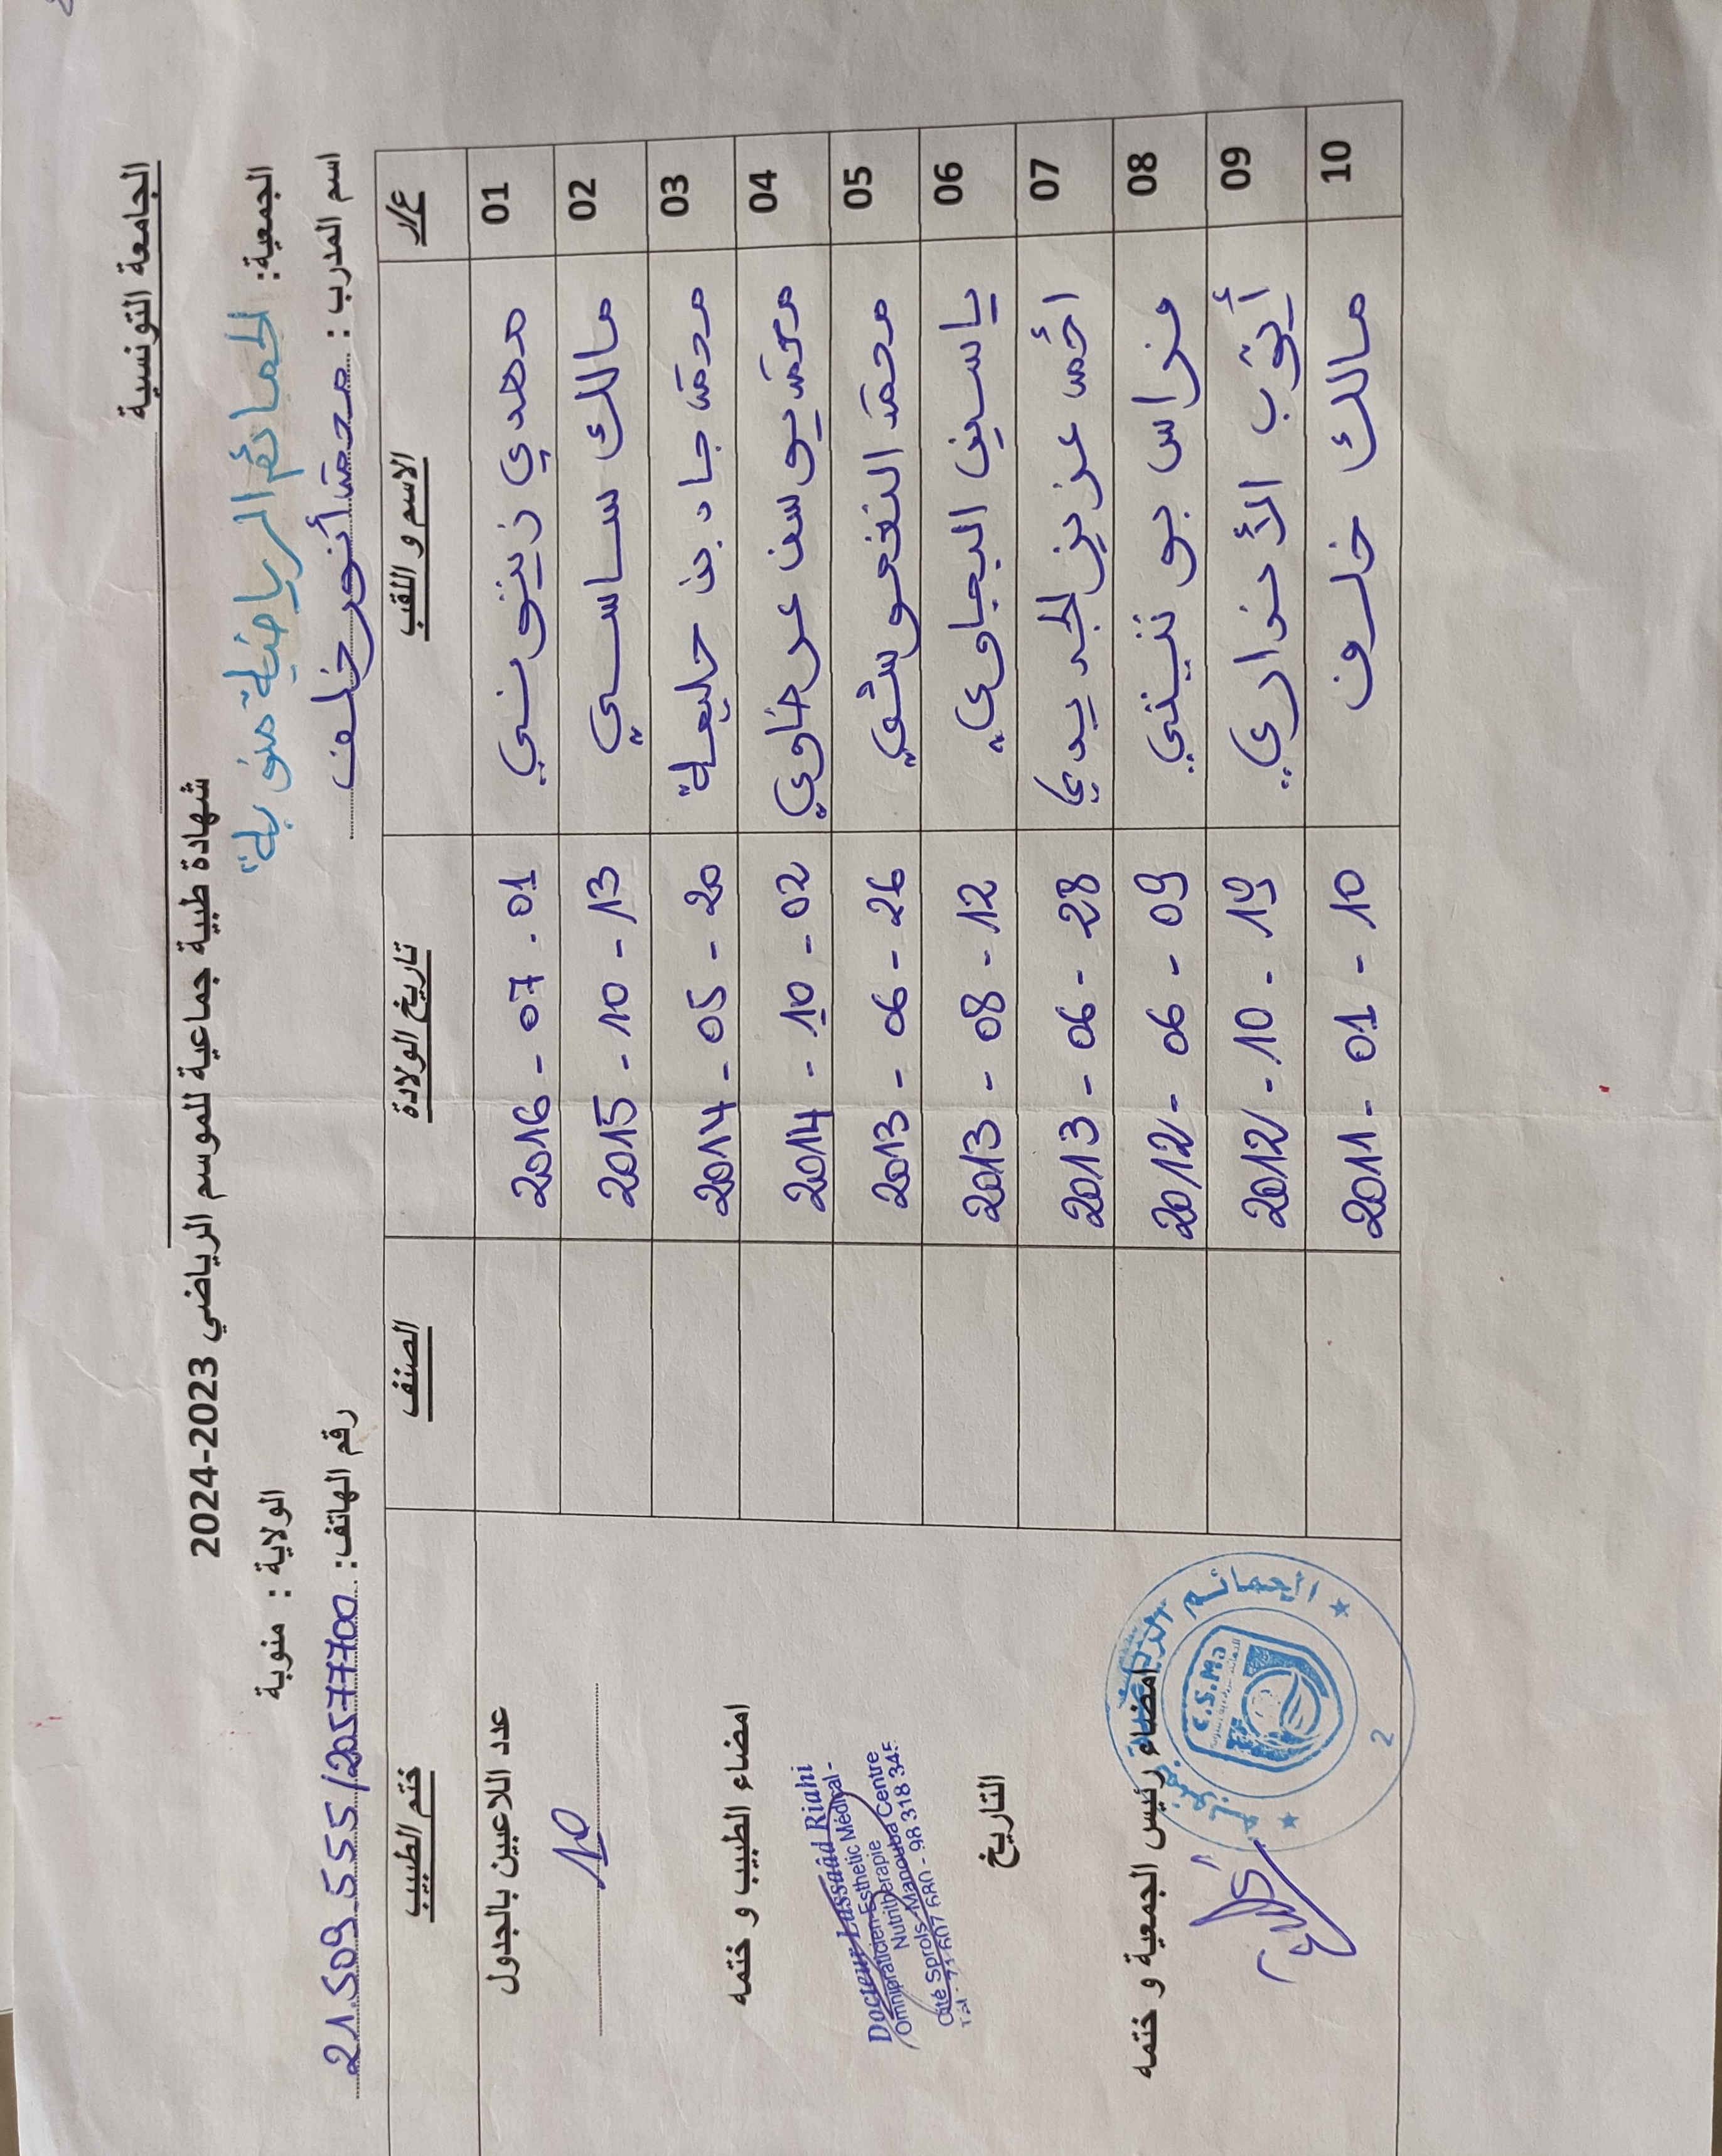 الجامعة التونسية
شهادة طبية جماعية للموسم الرياضي 2023-2024
الجمعية: الحمائم الرياضية منوبة
الولاية : منوبة
اسم المدرب : محمد أنور خلف
رقم الهاتف: 21.509.555/20577700
ع/ر الاسم و اللقب تاريخ الولادة الصنف ختم الطبيب
01 مهدي زيتوني 2016 - 07 - 01
02 مالك ساسي 2015 - 10 - 13
03 محمد جاد بن حليمة 2014 - 05 - 20
04 محمد يوسف عرضاوي 2014 - 10 - 02
05 محمد 2013 - 06 - 26
06 ياسين البجاوي 2013 - 08 - 12
07 أحمد عزيز الجديدي 2013 - 06 - 28
08 فراس 2012 - 06 - 09
09 أيوب 2012 - 10 - 19
10 مالك خلف 2011 - 01 - 10
عدد اللاعبين بالجدول
10
امضاء الطبيب و ختمه
Docteur Lassaâd Riahi
Omnipraticien-Esthetic Médical-
Nutritherapie
Cité Sprols-Manouba Centre
Tél : 71 607 680 - 98 318 345
التاريخ
امضاء رئيس الجمعية و ختمه
الحمائم الرياضية بمنوبة
C.S.Ma
2